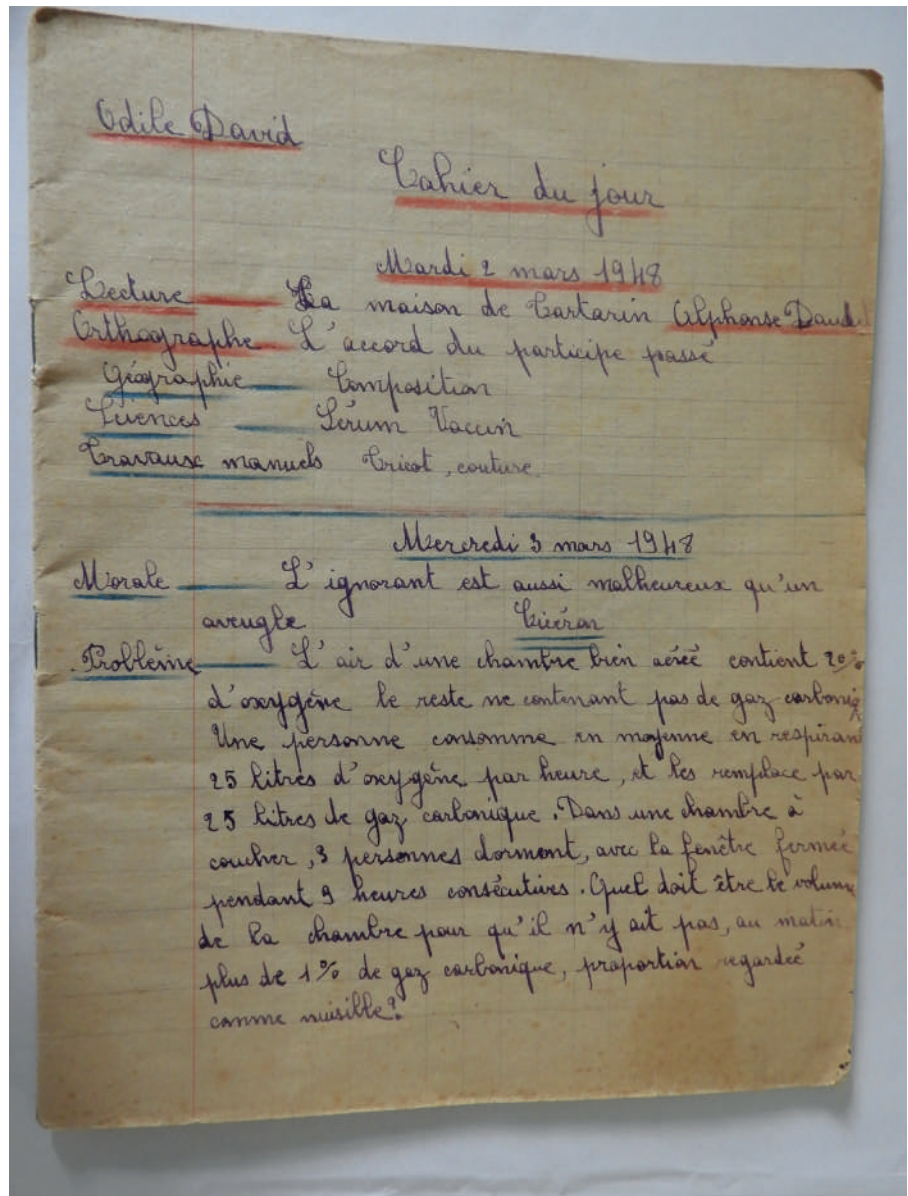 Odile David
Cahier du jour
Mardi 2 mars 1948
Lecture La maison de Tartarin Alphonse Daud
Orthographe L'accord du participe passé
Géographie Composition
Sciences Sérum Vaccin
Travaux manuels Tricot, couture
Mercredi 3 mars 1948
Morale L'ignorant est aussi malheureux qu'un
aveugle Cicéron
Problème L'air d'une chambre bien aéreé contient 20%
d'oxygène le reste ne contenant pas de gaz carboniq
Une personne consomme en moyenne en respirant
25 litres d'oxygène par heure, et les remplace par
25 litres de gaz carbonique. Dans une chambre à
coucher, 3 personnes dorment, avec la fenêtre fermeé
pendant 9 heures consécutives. Quel doit être le volume
de la chambre pour qu'il n'y ait pas, au matin
plus de 1% de gaz carbonique, proportion regardeé
comme nuisible?